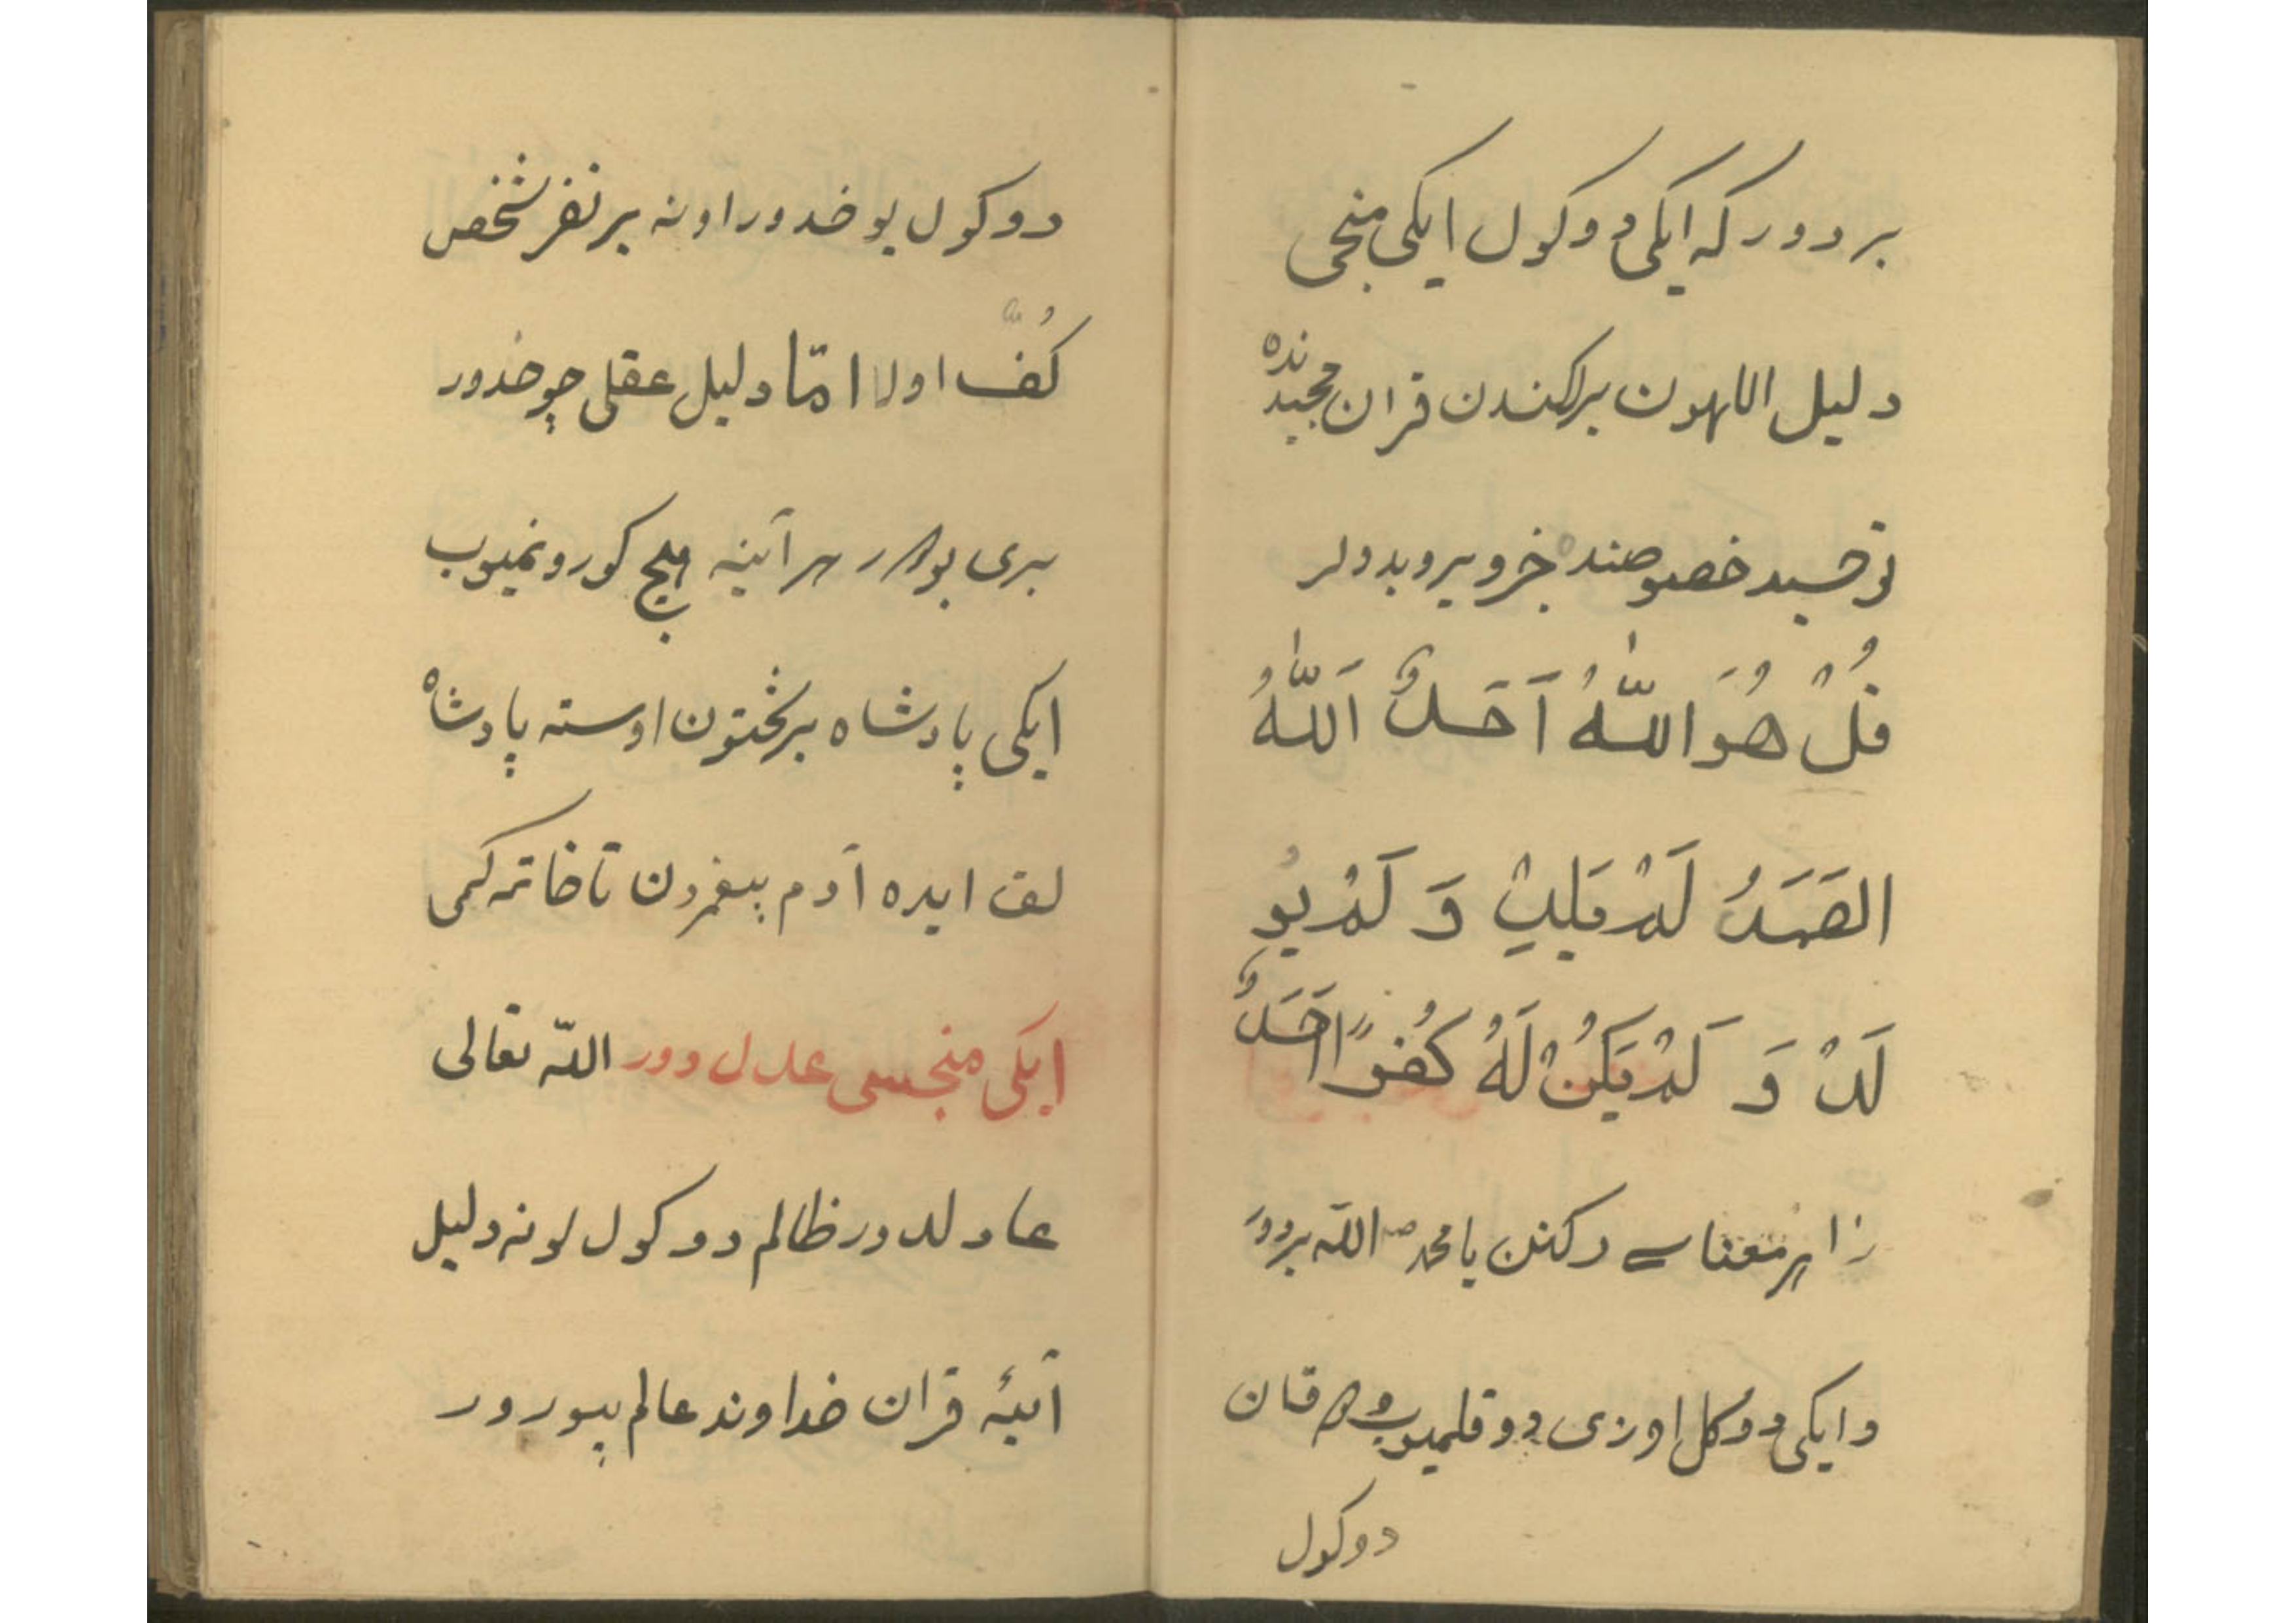 بر دور که ایکی دوکول ایکی منجی
دلیل اللهون برلکندن قران مجیدنده
توحسید خصوصنده خبر ویروبدولر
قُلْ هُوَ اللّٰهُ اَحَدٌ اَللّٰهُ
الصَمَدُ لَمْ یَلِدْ وَ لَمْ یُو
لَدْ وَ لَمْ یَکُنْ لَهُ کُفُوًا اَحَدٌ
معناسی دکنن یا محمد ص اللّه بردور
و ایکی دوکل اوزی دوقلمیوب
دوکول
دوکول یوخدور اونه بر نفر شخص
کُفّ اولا امّا دلیل عقلی چوخدور
بری بودر هر آینه هیچ کورونمیوب
ایکی پادشاه بر تختون اوسته پادشاه
لق ایده آدم پیغمبردن تا خاتمه کمی
ایکی منجسی عدل دور اللّه تعالی
عادلدور ظالم دوکول اونه دلیل
آیهٔ قران خداوند عالم بیورور